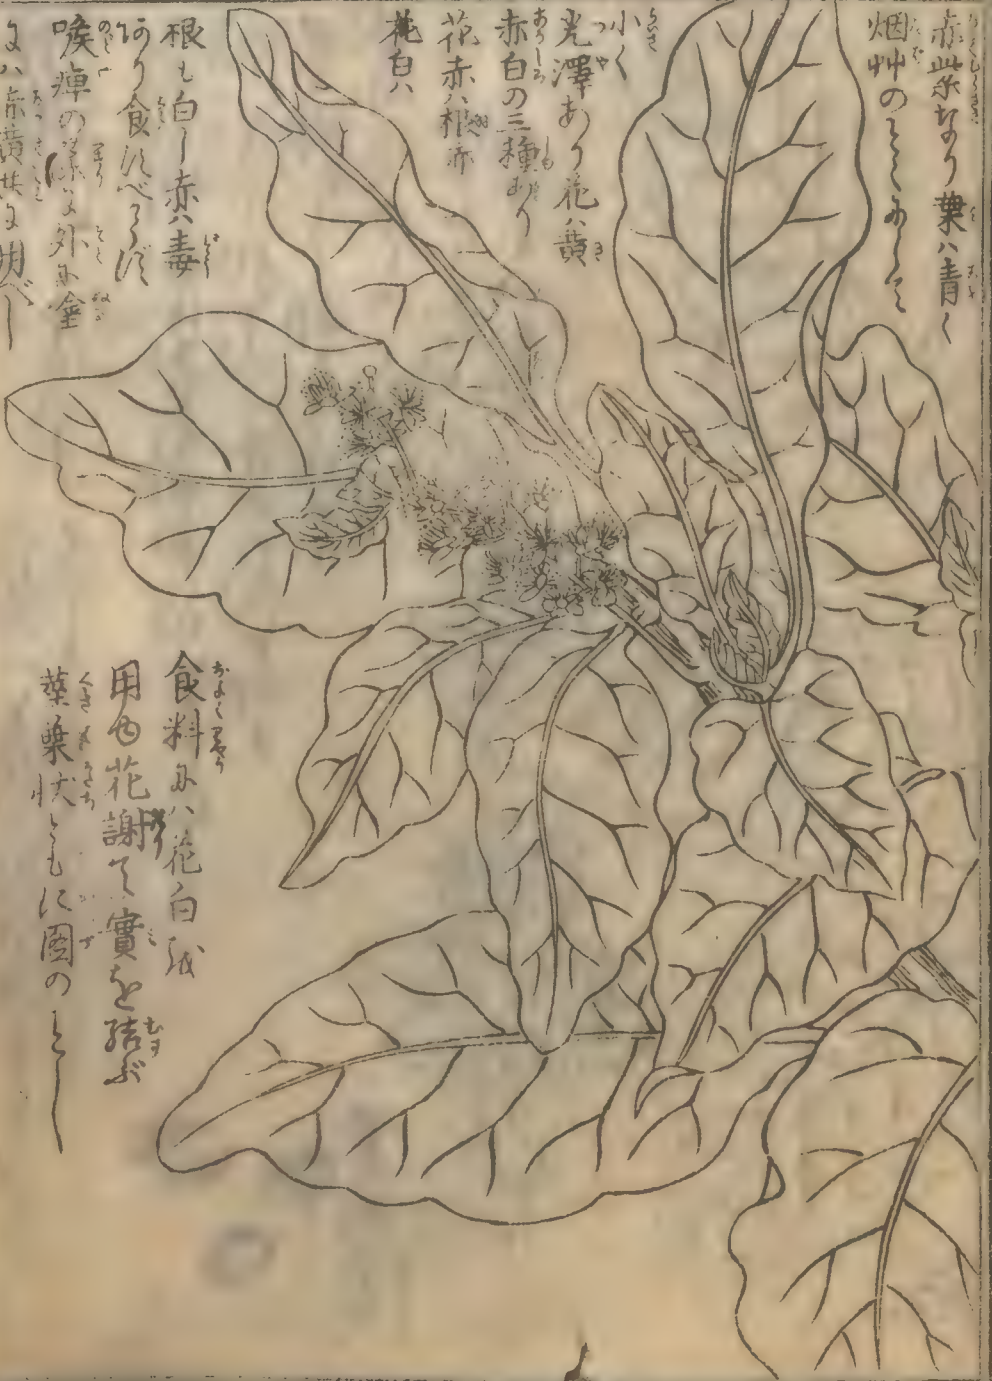 赤紫なり葉ハ青く
烟艸のごとくにして
小く
光澤あり花ハ黄
赤白の三種あり
花赤ハ根赤
花白ハ
根も白し赤ハ毒
あり食ふべからず
喉痺の 外に塗
用べし
食料にハ花白
用ゆ花謝て實を結ぶ
葉状ともに図のごとし